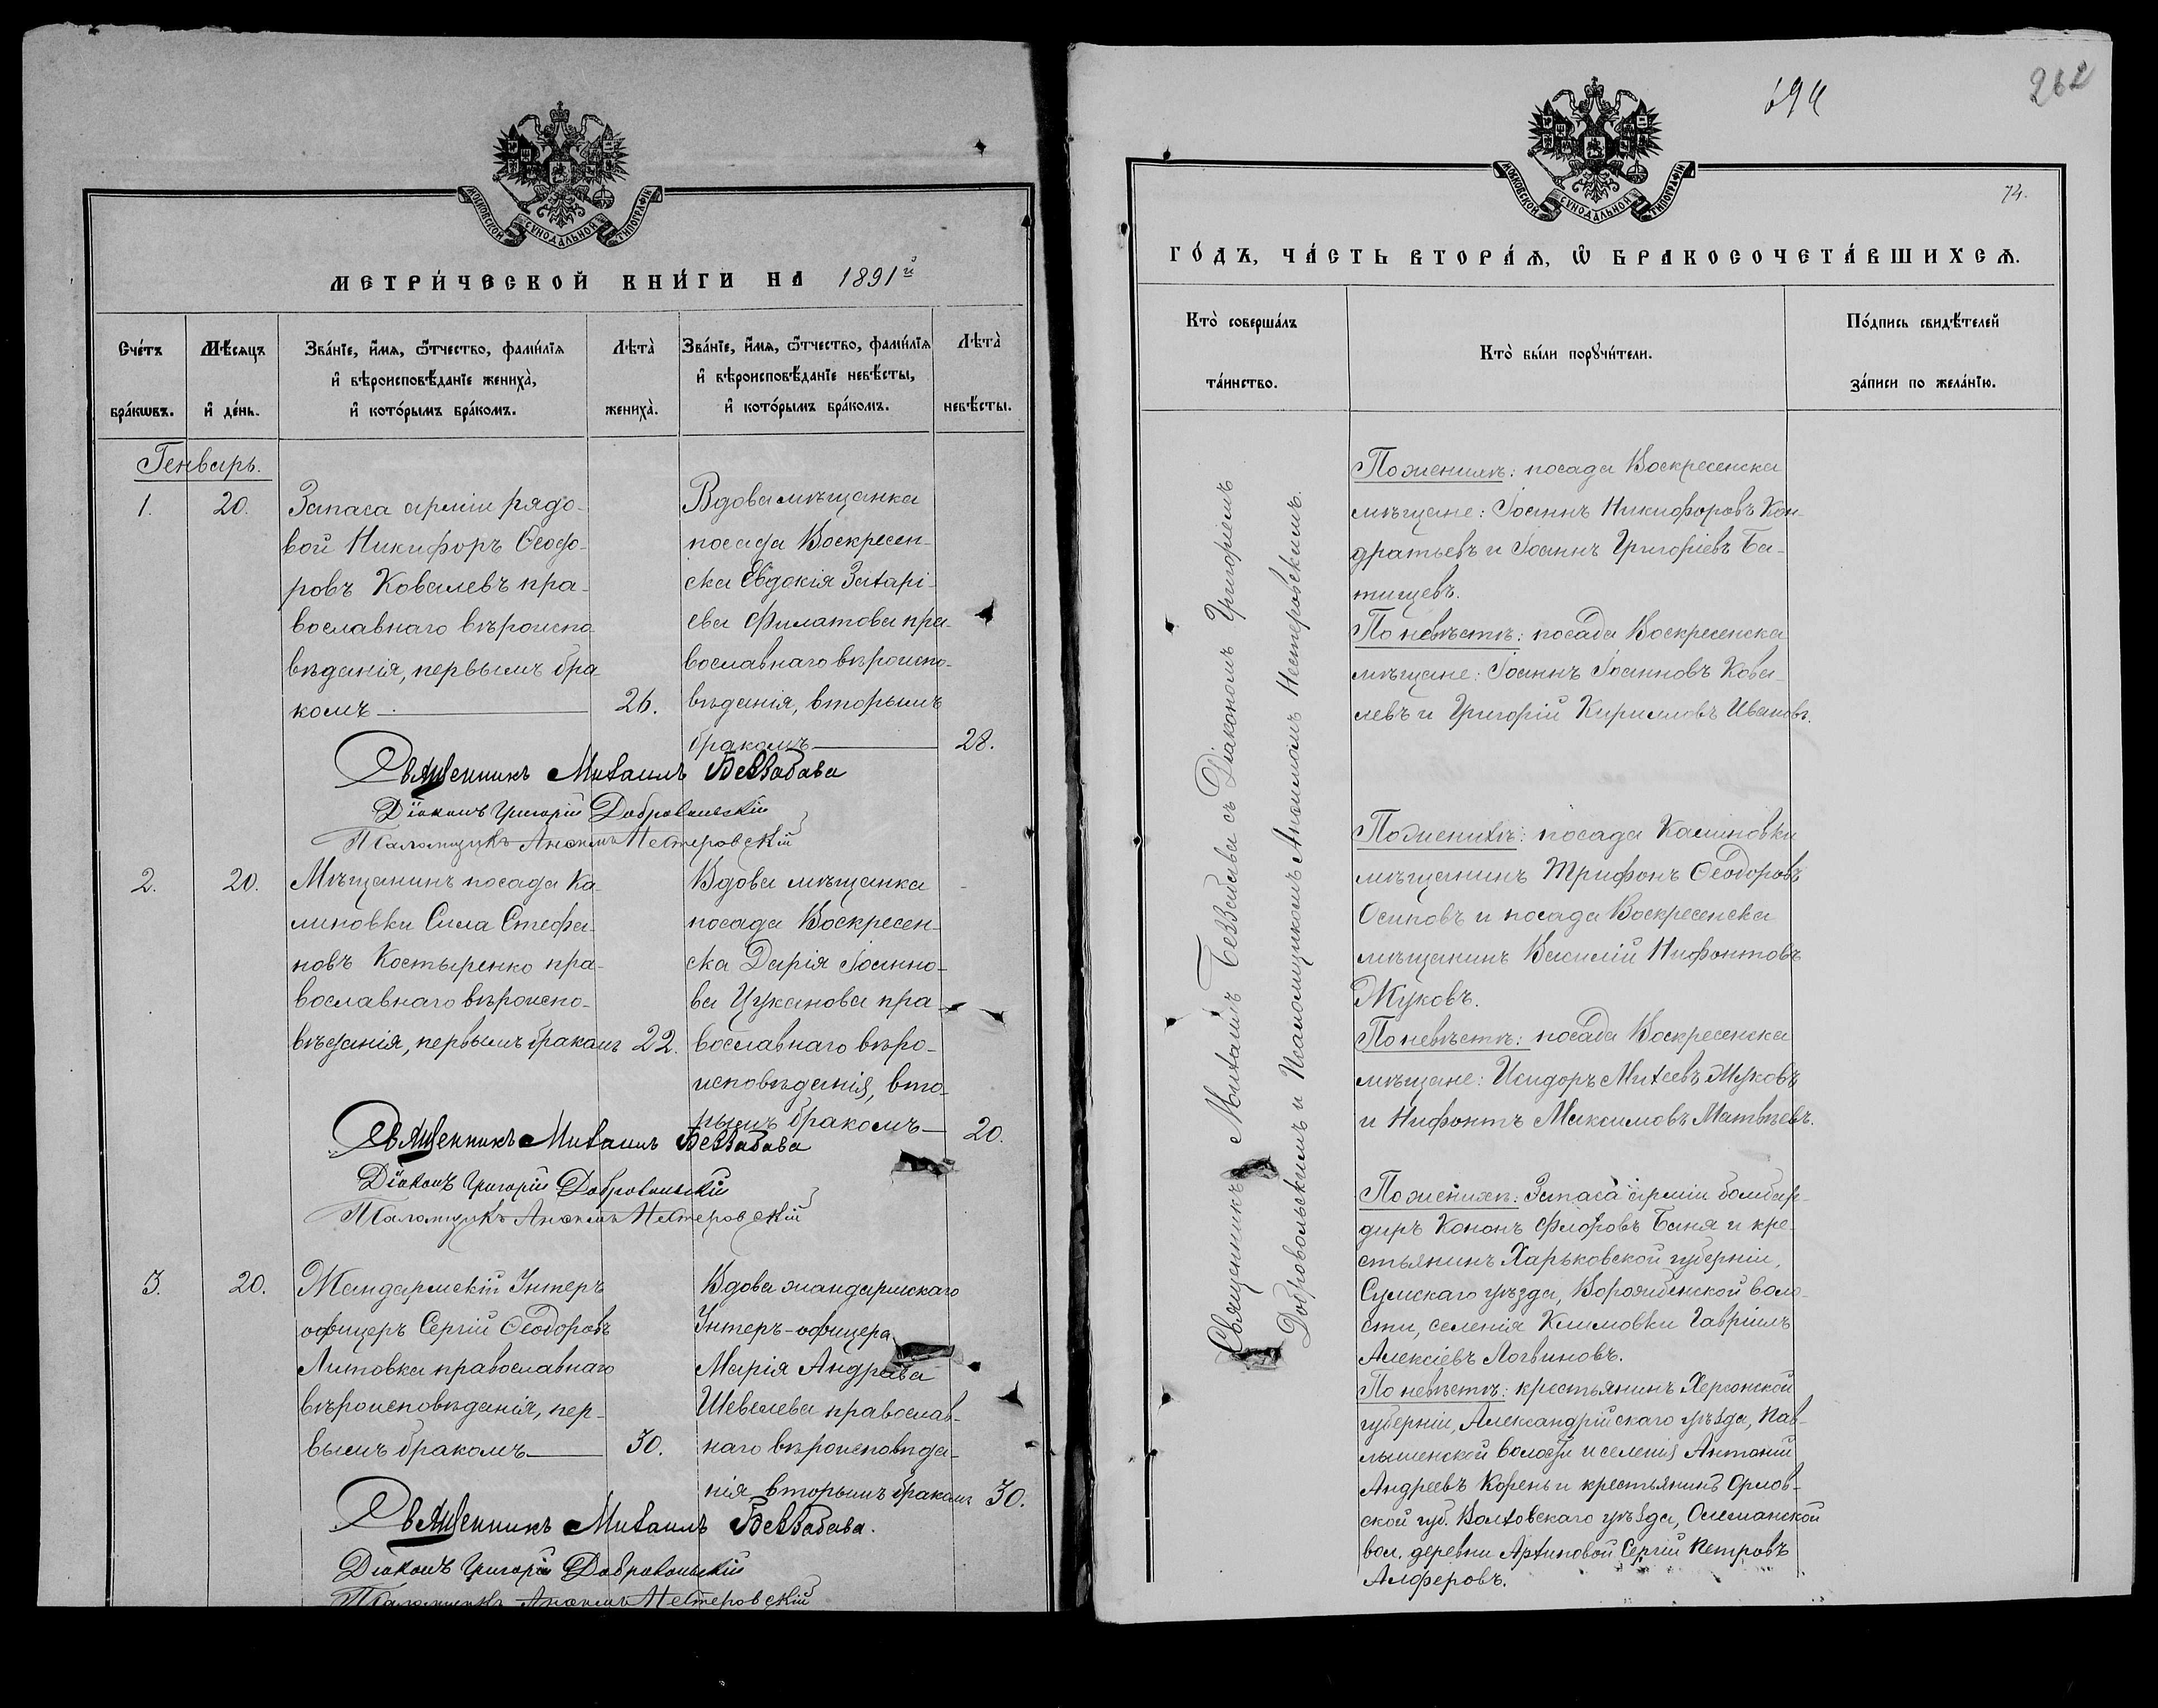 МОСКОВСКОЙ СѴНОДАЛЬНОЙ ТИПОГРАФІИ
МЕТРИ́ЧЕСКОЙ КНИ́ГИ НА 1891й
Сче́тъ бра́кѡвъ.
Мѣ́сяцъ и҆ де́нь.
Зва́нїе, и҆́мѧ, ѻ҆́тчество, фами́лїѧ
и҆ вѣроисповѣ́данїе жениха̀,
и҆ кото́рымъ бра́комъ.
Лѣта̀ жениха̀.
Зва́нїе, и҆́мѧ, ѻ҆́тчество, фами́лїѧ
и҆ вѣроисповѣ́данїе невѣ́сты,
и҆ кото́рымъ бра́комъ.
Лѣта̀ невѣ́сты.
Генварь.
1.
20.
Запаса арміи рядо-
вой Никифоръ Ѳеодо-
ровъ Ковалевъ пра-
вославнаго вѣроиспо
вѣданія, первымъ бра
комъ
26.
Вдова мѣщанка
посада Воскресен-
ска Евдокія Захарі-
ева Филатова пра-
вославнаго вѣроиспо-
вѣданія, вторымъ
бракомъ
28.
Священникъ Михаилъ Беззабава
Діаконъ Григорій Добровольскій
Псаломщикъ Анеимъ Нестеровскій
2.
20.
Мѣщанинъ посада Ка-
линовки Сила Стефа-
новъ Костыренко пра-
вославнаго вѣроиспо-
вѣданія, первымъ бракомъ
22.
Вдова мѣщанка
посада Воскресен-
ска Дарія Іоанно-
ва Цуканова пра-
вославнаго вѣро-
исповѣданія, вто-
рымъ бракомъ
20.
Священникъ Михаилъ Беззабава
Діаконъ Григорій Добровольскій
Псаломщикъ Анеимъ Нестеровскій
3.
20.
Жандармскій Унтеръ
офицеръ Сергій Ѳеодоровъ
Литовка православнаго
вѣроисповѣданія, пер-
вымъ бракомъ
30.
Вдова жандармскаго
Унтеръ-офицера
Марія Андреева
Шевелева православ-
наго вѣроисповѣда-
нія, вторымъ бракомъ
30.
Священникъ Михаилъ Беззабава.
Діаконъ Григорій Добровольскій
Псаломщикъ Анеимъ Нестеровскій
262
74.
МОСКОВСКОЙ СѴНОДАЛЬНОЙ ТИПОГРАФІИ
ГО́ДЪ, ЧА́СТЬ ВТОРА́Ѧ, Ѡ҆ БРАКОСОЧЕТА́ВШИХСѦ.
Кто̀ соверша́лъ
та́инство.
Кто̀ бы́ли порꙋчи́тели.
По́дпись свидѣ́телей
за́писи по жела́нїю.
Священникъ Михаилъ Беззабава съ Діакономъ Григоріемъ
Добровольскимъ и Псаломщикомъ Нестеровскимъ.
По женихѣ: посада Воскресенска
мѣщане: Іоаннъ Никифоровъ Кон-
дратьевъ и Іоаннъ Григоріевъ Ба-
тищевъ.
По невѣстѣ: посада Воскресенска
мѣщане: Іоаннъ Іоанновъ Кова-
левъ и Григорій Кирилловъ Ивановъ.
По женихѣ: посада Калиновки
мѣщанинъ Трифонъ Ѳеодоровъ
Осиповъ и посада Воскресенска
мѣщанинъ Василій Нифонтовъ
Жуковъ.
По невѣстѣ: посада Воскресенска
мѣщане: Исидоръ Михеевъ Жуковъ
и Нифонтъ Максимовъ Матвѣевъ.
По женихѣ: Запаса арміи бомбар-
диръ Кононъ Флоровъ Баня и кре-
стьянинъ Харьковской губерніи,
Сумскаго уѣзда, Ворожбянской воло-
сти, селенія Климовки Гавріилъ
Алексіевъ Логвиновъ.
По невѣстѣ: крестьянинъ Херсонской
губерніи, Александрійскаго уѣзда, Пав-
лышенской волости и селенія Антоній
Андреевъ Корень и крестьянинъ Орлов-
ской губ. Болховскаго уѣзда,
вол. деревни Сергій Петровъ
Алферовъ.